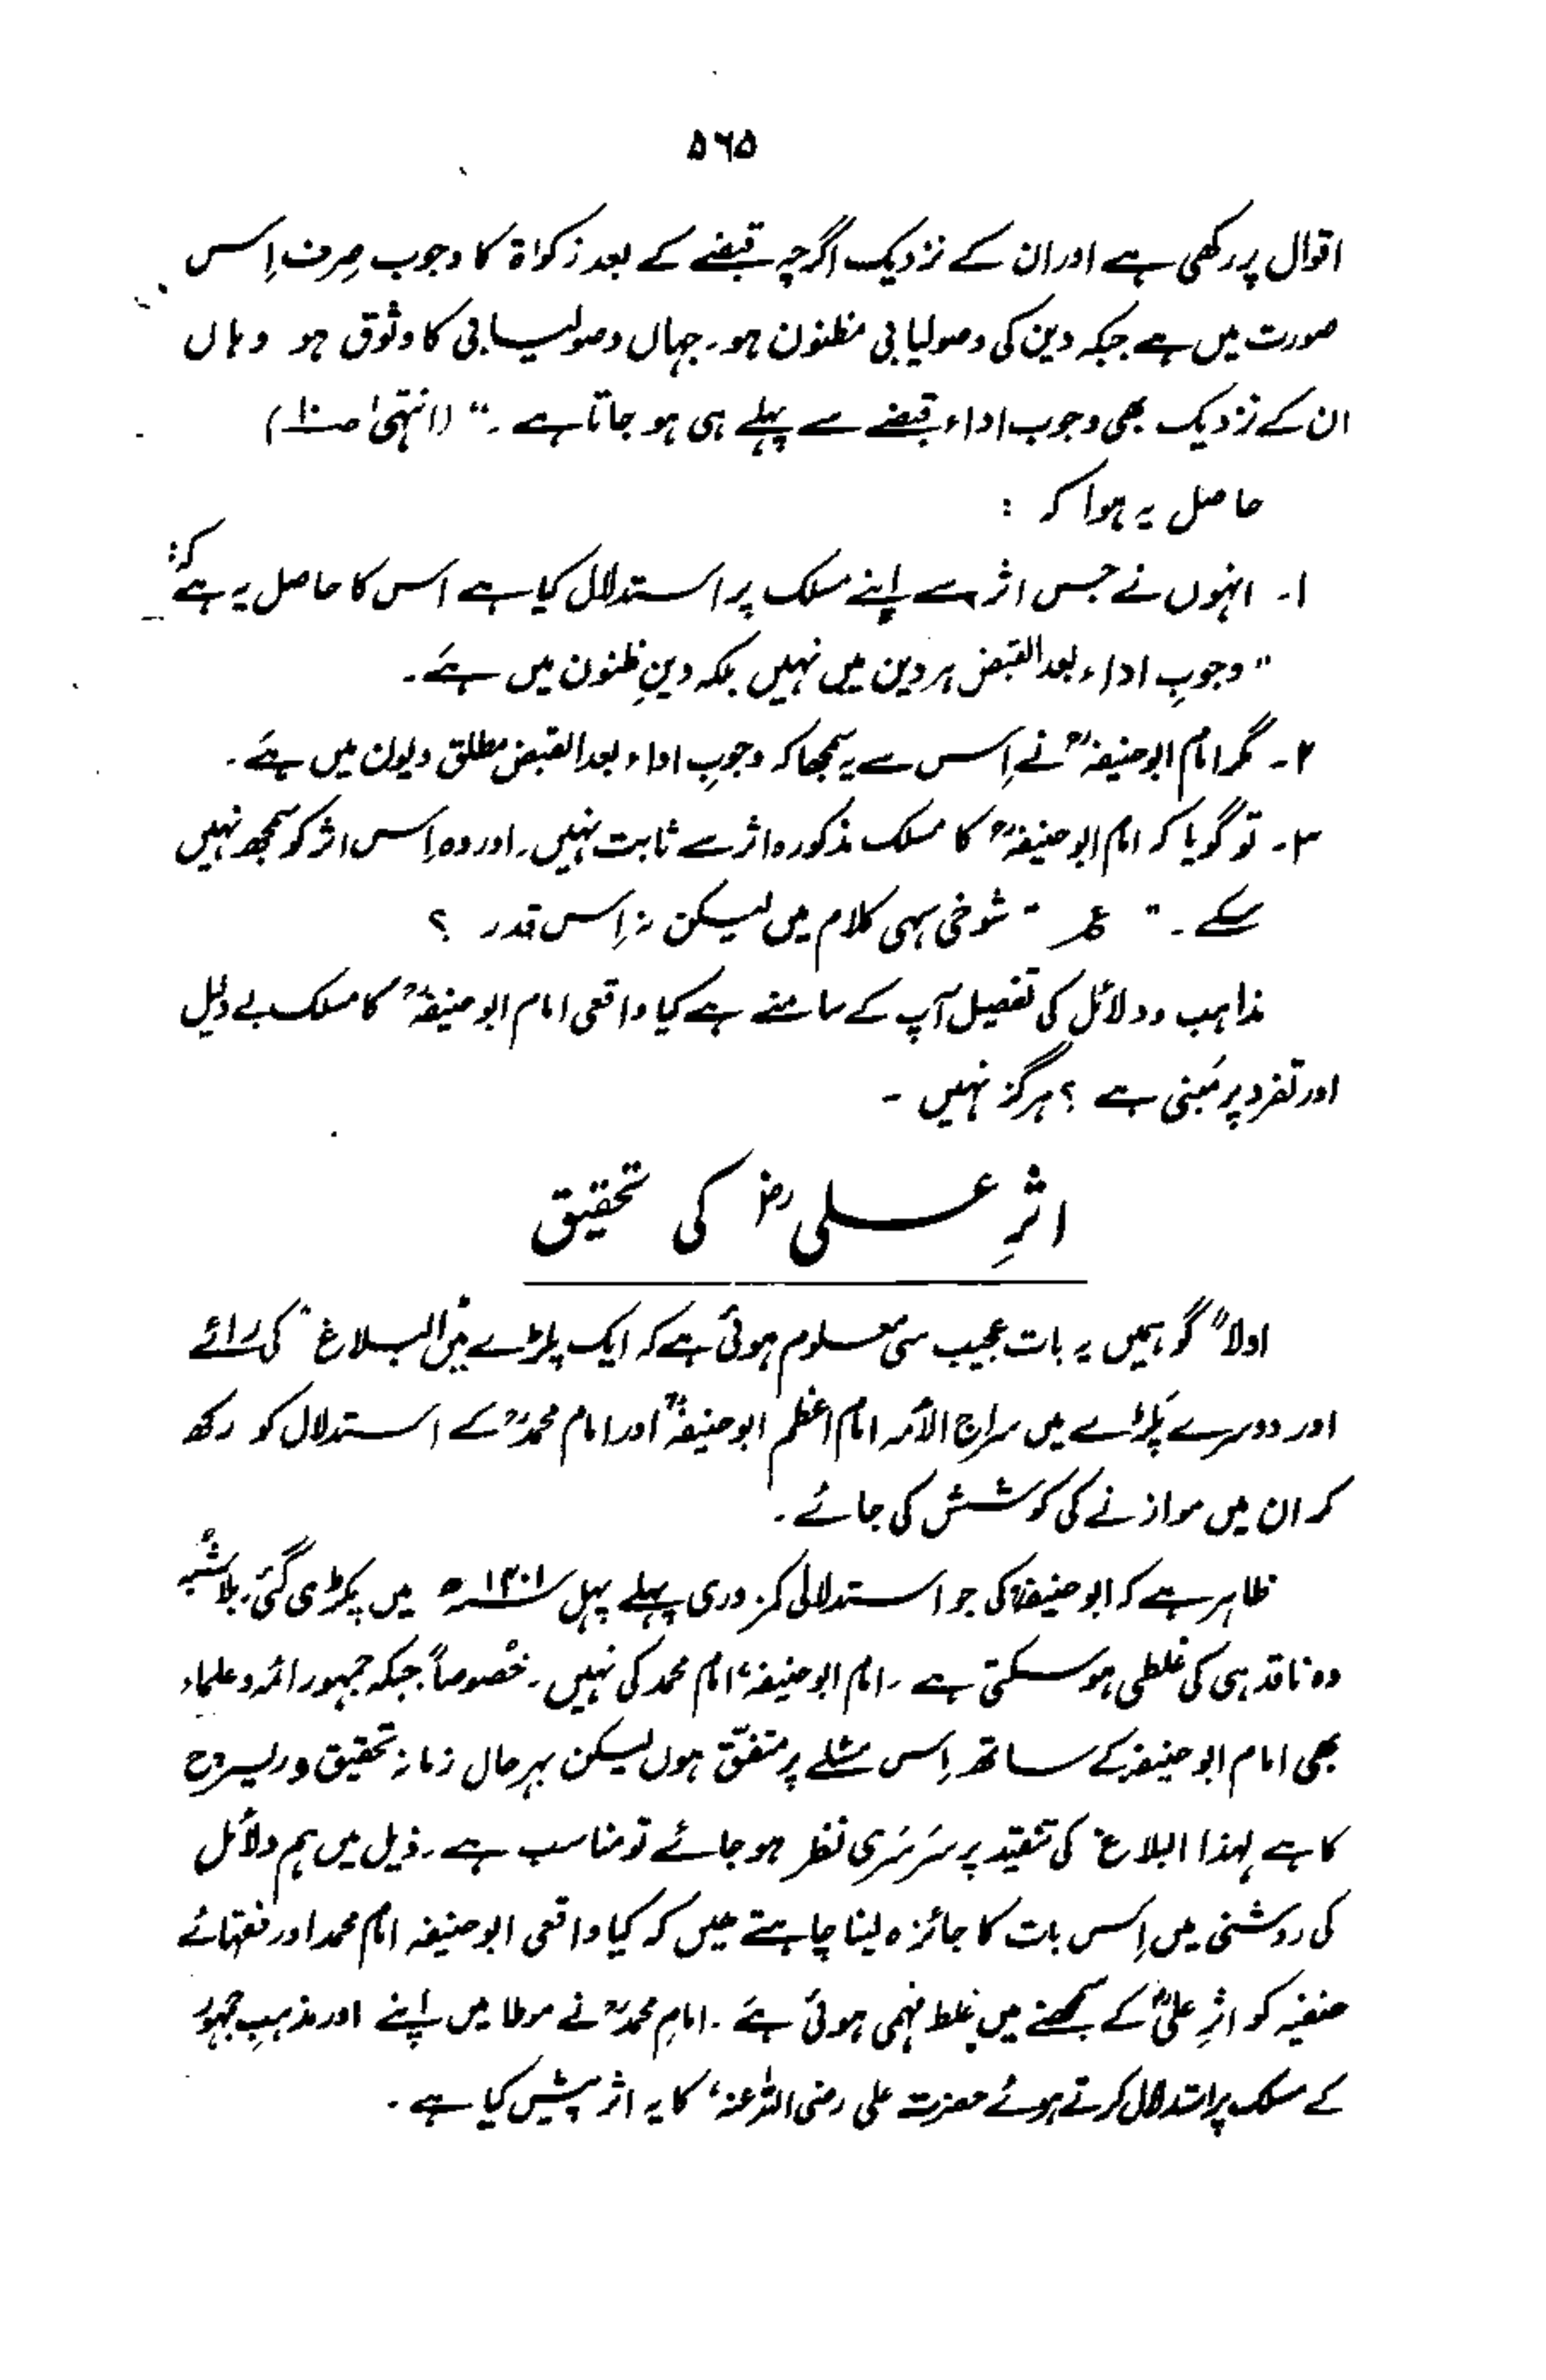 ۵۶۵
اقوال پر رکھی ہے اور ان کے نزدیک اگرچہ قبضے کے بعد زکوٰۃ کا وجوب صِرف اِسس
صورت میں ہے جبکہ دین کی وصولیابی مظنون ہو۔ جہاں وصولیابی کا وثوق ہو وہاں
ان کے نزدیک بھی وجوب اداء قبضے سے پہلے ہی ہو جاتا ہے۔" (انتہیٰ صنا)
حاصل یہ ہوا کہ :
۱۔ انہوں نے جس اثر سے اپنے مسلک پر استدلال کیا ہے اس کا حاصل یہ ہے کہ:
"وجوبِ اداء بعد القبض ہر دین میں نہیں بلکہ دینِ ظنون میں ہے۔
۲۔ مگر امام ابوحنیفہؒ نے اِس سے یہ سمجھا کہ وجوبِ اداء بعد القبض مطلق دیون میں ہے۔
۳۔ تو گویا کہ امام ابوحنیفہؒ کا مسلک مذکورہ اثر سے ثابت نہیں۔ اور وہ اِس اثر کو سمجھ نہیں
سکے۔" ؏ "شوخی سہی کلام میں لیکن نہ اِس قدر ؟
مذاہب و دلائل کی تفصیل آپ کے سامنے ہے کیا واقعی امام ابوحنیفہؒ کا مسلک بے دلیل
اور تفرد پر مَبنی ہے ؟ ہرگز نہیں۔
اثرِ علی رضؓ کی تحقیق
اولاً" گو ہمیں یہ بات عجیب سی معلوم ہوئی ہے کہ ایک پلڑے میں "البلاغ" کی رائے
اور دوسرے پَلڑے میں سراج الأئمہ امام اعظم ابوحنیفہؒ اور امام محمدؒ کے استدلال کو رکھ
کر ان میں موازنے کی کوشش کی جائے۔
ظاہر ہے کہ ابوحنیفہؒ کی جو استدلالی کمزوری پہلے پہل ۱۴۰۱ھ میں پکڑی گئی۔ بلاشبہ
وہ ناقد ہی کی غلطی ہو سکتی ہے۔ امام ابوحنیفہ، امام محمد کی نہیں۔ خصوصاً جبکہ جمہور ائمہ و علماء
بھی امام ابوحنیفہ کے ساتھ اِس مسئلے پر متفّق ہوں لیکن بہرحال زمانہ تحقیق و ریسرچ
کا ہے لہذا البلاغ" کی تنقید پر سَرسَری نظر ہو جائے تو مناسب ہے۔ ذیل میں ہم دلائل
کی روشنی میں اِس بات کا جائزہ لینا چاہتے ہیں کہ کیا واقعی ابوحنیفہ امام محمد اور فقہائے
حنفیہ کو اثرِ علیؓ کے سمجھنے میں غلط فہمی ہوئی ہے۔ امام محمدؒ نے موطا میں اپنے اور مذہبِ جمہور
کے مسلک پر استدلال کرتے ہوئے حضرت علی رضی اللہ عنہ، کا یہ اثر پیش کیا ہے۔